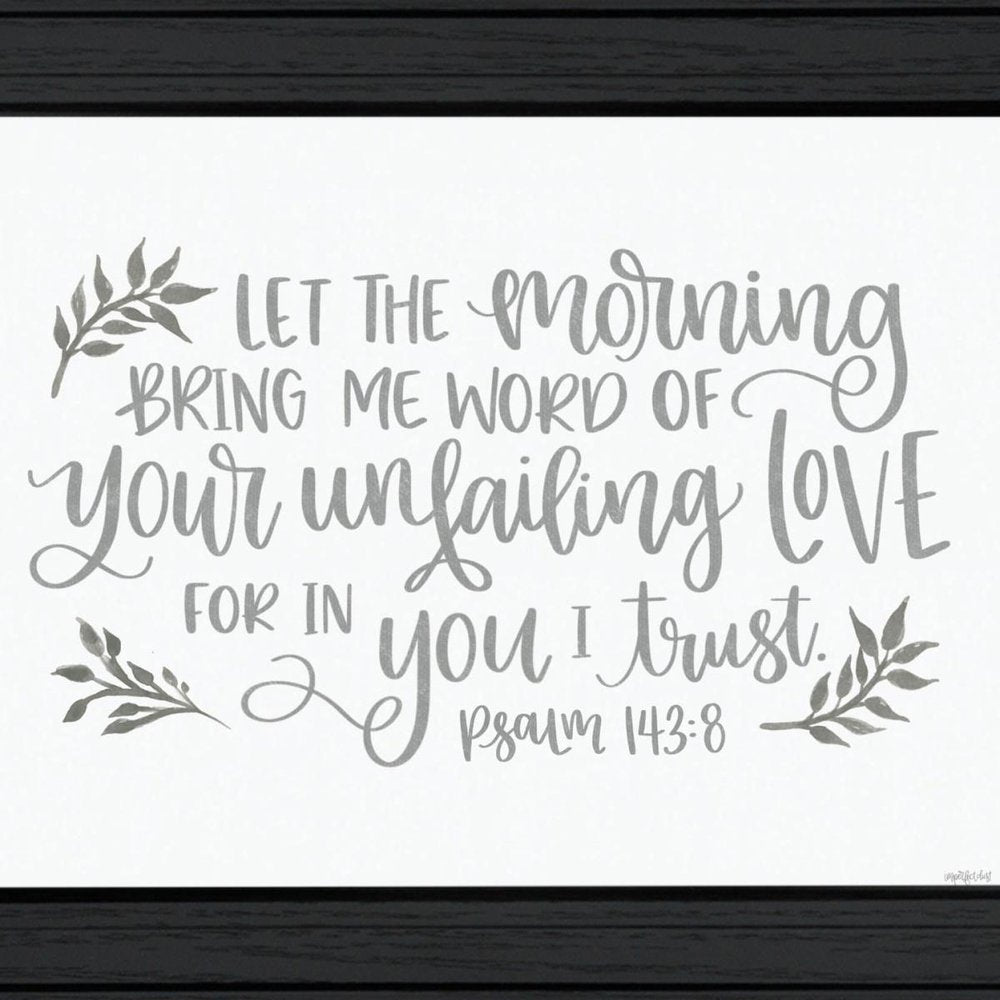 LET THE morning
BRING ME WORD OF
your unfailing LOVE
FOR IN you I trust.
Psalm 143:8
imperfect dust